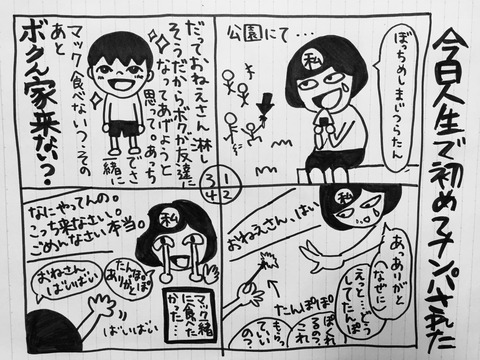 今日人生で初めてナンパされた
公園にて…
ぼっちめしまじつらたん
私
1
2
3
4
私
おねえさん、はい
あ、ありがと
(なぜに)
えっと…どう
してたんぽ
ぽくれ
るのっ、
これ
もらっ
ていい
のっ
たんぽぽ
だっておねえさん淋し
そうだからボクが友達に
なってあげようと
思って。あっち
でさ
一緒に
マック食べないっ?その
あと
ボクん家来ないっ?
なにやってんの。
こっち来なさい。
ごめんなさい、本当。
私
たんぽぽ
ありがと
おねさん、
ばいばい
ばいばい
マック一緒
に食べた
かった…